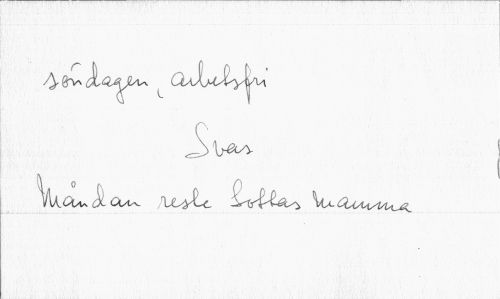 söndagen, arbetsfri
Svas
Måndan reste Lottas mamma